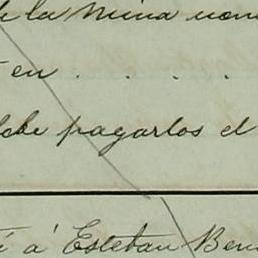 de la mina
en . . . .
debe pagarlos el
á Esteban